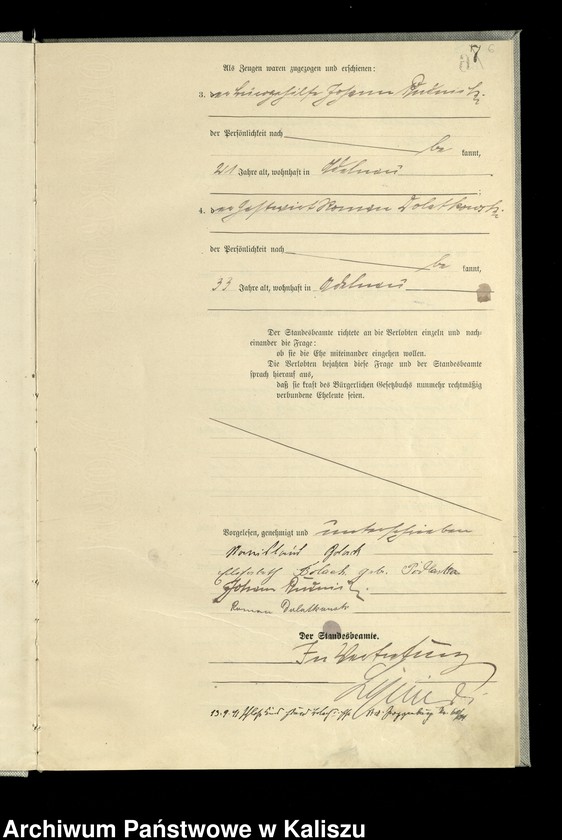 7
Als Zeugen waren zugezogen und erschienen:
3. der Johann
der Persönlichkeit nach
be kannt,
21 Jahre alt, wohnhaft in Adelnau
4. der Gastwirt Roman Dolatkowski
der Persönlichkeit nach
be kannt,
33 Jahre alt, wohnhaft in Adelnau
Der Standesbeamte richtete an die Verlobten einzeln und nach-
einander die Frage:
ob sie die Ehe miteinander eingehen wollen.
Die Verlobten bejahten diese Frage und der Standesbeamte
sprach hierauf aus,
daß sie kraft des Bürgerlichen Gesetzbuchs nunmehr rechtmäßig
verbundene Eheleute seien.
Vorgelesen, genehmigt und unterschrieben
geb.
Johann
Roman Dolatkowski
Der Standesbeamte.
In Vertretung
13.9.
Archiwum Państwowe w Kaliszu